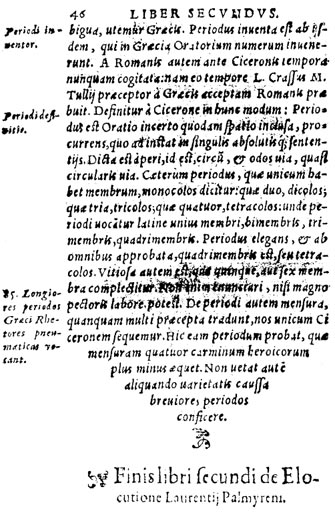 46 LIBER SECVNDVS.
Periodi in-
uentor.
bigua, utemur Græcis. Periodus inuenta est ab ijs-
dem, qui in Græcia Oratorium numerum inuene-
runt. A Romanis autem ante Ciceronis tempora
nunquam cogitata: nam eo tempore L. Crassus M.
Tullij præceptor à Græcis acceptam Romanis præ
Periodi defi-
nitio.
buit. Definitur à Cicerone in hunc modum: Perio-
dus est Oratio incerto quodam spatio inclusa, pro-
currens, quo ad instat in singulis absolutisq́; senten-
tijs. Dicta est à peri, id est, circũ, & odos uia, quasi
circularis uia. Cæterùm periodus, quæ unicum ha-
bet membrum, monocolos dicitur: quæ duo, dicolos;
quæ tria, tricolos; quæ quatuor, tetracolos: unde pe-
riodi uocãtur latine unius membri, bimembris, tri-
membris, quadrimembris. Periodus elegans, & ab
omnibus approbata, quadrimembris est, seu tetra-
colos. Vitiosa autem est, quæ quinque, aut sex mem-
85. Longio-
res periodos
Græci Rhe-
tores pneu-
maticas vo-
cant.
bra complectitur. enunciari, nisi magno
pectoris labore potest. De periodi autem mensura,
quanquam multi præcepta tradunt, nos unicum Ci
ceronem sequemur. Hic eam periodum probat, quæ
mensuram quatuor carminum heroicorum
plus minus æquet. Non uetat autẽ
aliquando uarietatis caussa
breuiores periodos
conficere.
Finis libri secundi de Elo-
cutione Laurentij Palmyreni.